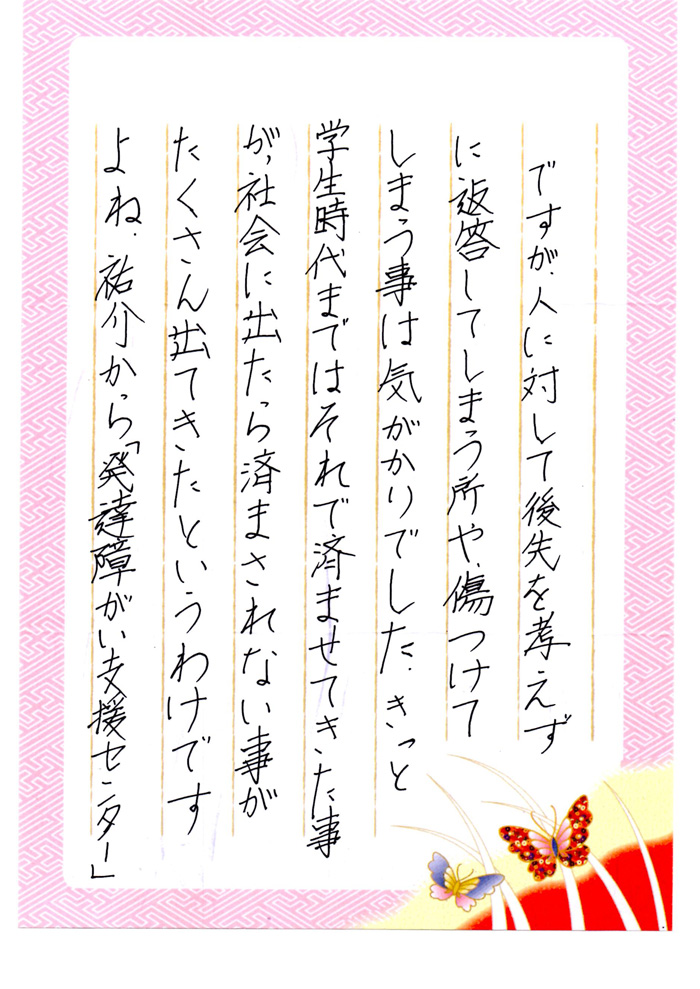 ですが、人に対して後先を考えず
に返答してしまう所や、傷つけて
しまう事は気がかりでした。きっと
学生時代まではそれで済ませてきた事
が、社会に出たら済まされない事が
たくさん出てきたというわけです
よね。祐介から「発達障がい支援センター」